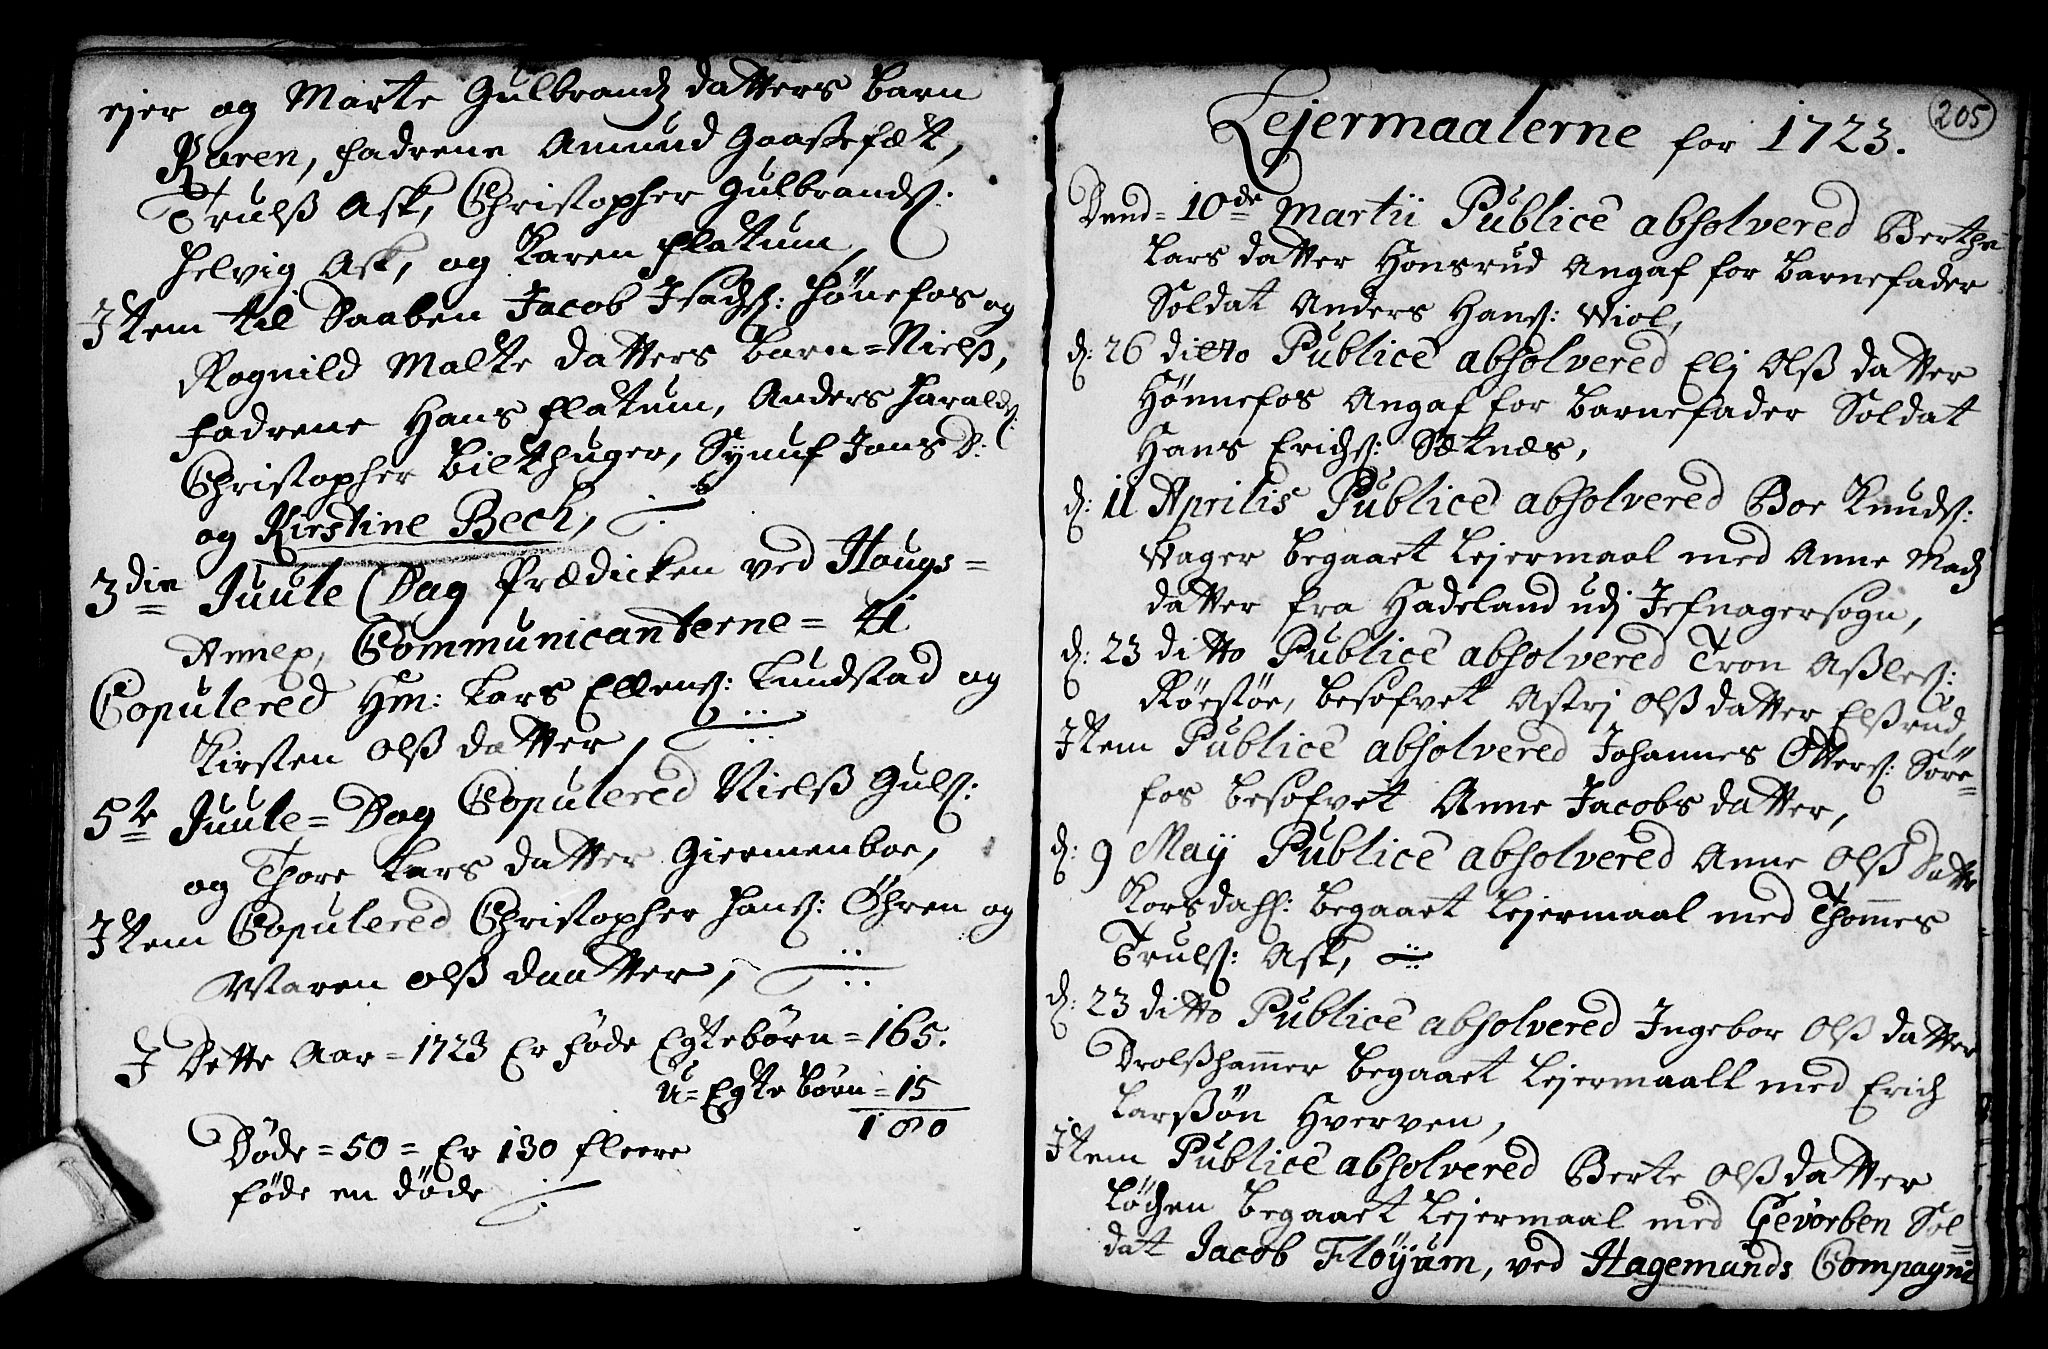 ejer og Marte Gulbrandz datters barn
Karen, fadrene Amund Gaasefæt,
Trulß Ask, Christopher Gulbrandß:
Helvig Ask, og Karen flatum,
Item til Daaben Jacob Isachß: Hönefos og
Rognild Malte datters barn = Nielß,
fadrene Hans flatum, Anders Haraldß:
Christopher Bilthuger, Synuf Jons D:
og Kirstine Bech,
3die Juule Dag Prædicken ved Haugs=
Annex, Communicanterne = 41
Copulered Hm: Lars Ellenß: Lundstad og
Kirsten Olß datter,
5te Juule = Dag Copulered Nielß Gulß:
og Thore Lars datter Giermenboe,
Item Copulered Christopher Hanß: Öhren og
Maren Olß daatter,
I Dette Aar = 1723 Er föde Egtebörn = 165.
U = Egte börn = 15
180
Döde = 50 = Er 130 fleere
föde en döde
205
Lejermaalerne for 1723.
Dend = 10de Martii Publicè absolvered Berthe
Lars datter Honsrud Angaf for barnefader
Soldat Anders Hanß: Wiol,
d: 26 ditto Publicè absolvered Elj Olß datter
Hönnefos Angaf for barnefader Soldat
Hans Erichß: Sætnæs,
d: 11 Aprilis Publicè absolvered Boe Knudß:
Wager begaaet Lejermaal med Anne Madz
datter fra Hadeland udj Jefnagersogn,
d: 23 ditto Publicè absolvered Tron Aßleß:
Röestöe, besofvet Astrj Olß datter Elßrud,
Item Publicè absolvered Johannes Otterß: Söre=
fos besofvet Anne Jacobs datter,
d: 9 Maij Publicè absolvered Anne Olß datter
Korsdahl: begaaet Lejermaal med Thom̄es
Trulß: Ask,
d: 23 ditto Publicè absolvered Ingebor Olß datter
Drolßham̄er begaaet Lejermaall med Erich
Larßön Hverven,
Item Publicè absolvered Berte Olß datter
Löchen begaaet Lejermaal med Gevorben Sol=
dat Jacob Flöyum, ved Hagemunds Compagnie